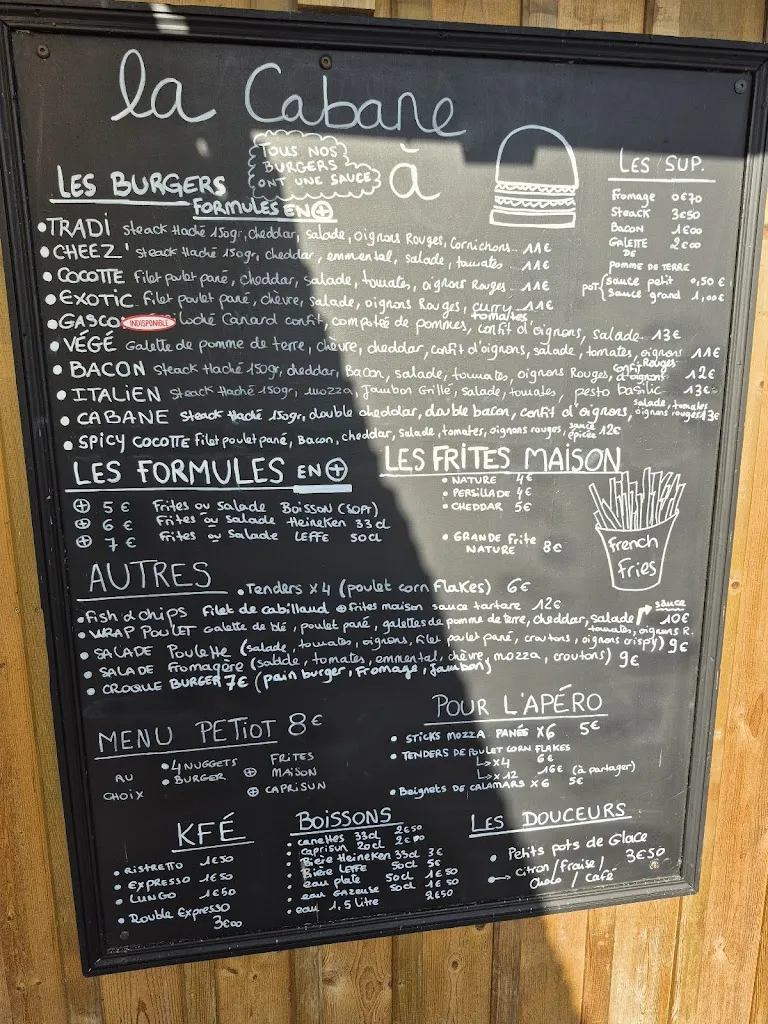 la Cabane
à
TOUS NOS
BURGERS
ONT UNE SAUCE
LES BURGERS
FORMULES EN +
• TRADI steack Haché 150gr, cheddar, salade, oignons Rouges, Cornichons. 11€
• CHEEZ' steack Haché 150gr, cheddar, emmental, salade, tomates 11€
• COCOTTE Filet poulet pané, cheddar, salade, tomates, oignons Rouges 11€
• EXOTIC Filet poulet pané, chèvre, salade, oignons Rouges, curry, tomates 11€
• GASCO INDISPONIBLE iloché Canard confit, compotée de pommes, confit d'oignons, salade 13€
• VÉGÉ Galette de pomme de terre, chèvre, cheddar, confit d'oignons, salade, tomates, oignons Rouges 11€
• BACON steack Haché 150gr, cheddar, Bacon, salade, tomates, oignons Rouges, confit d'oignons 12€
• ITALIEN steack Haché 150gr, mozza, Jambon Grillé, salade, tomates, pesto basilic 13€
• CABANE steack Haché 150gr, double cheddar, double bacon, confit d'oignons, salade, tomates, oignons rouges 13€
• SPICY COCOTTE Filet poulet pané, Bacon, cheddar, salade, tomates, oignons rouges, sauce épicée 12€
LES SUP.
Fromage 0€70
Steack 3€50
Bacon 1€00
GALETTE DE POMME DE TERRE 2€00
POT sauce petit 0,50€
sauce grand 1,00€
LES FORMULES EN +
+ 5€ Frites ou Salade Boisson (SOFT)
+ 6€ Frites ou Salade Heineken 33cl
+ 7€ Frites ou Salade LEFFE 50cl
LES FRITES MAISON
• NATURE 4€
• PERSILLADE 4€
• CHEDDAR 5€
• GRANDE Frite
NATURE 8€
french
fries
AUTRES
• Tenders x4 (poulet corn flakes) 6€
• Fish & chips Filet de cabillaud + frites maison sauce tartare 12€
• WRAP POULET Galette de blé, poulet pané, galettes de pomme de terre, cheddar, salade, tomates, oignons R. sauce 10€
• SALADE Poulette (salade, tomates, oignons, filet poulet pané, croutons, oignons crispy) 9€
• SALADE Fromagère (salade, tomates, emmental, chèvre, mozza, croutons) 9€
• CROQUE BURGER 7€ (pain burger, fromage, jambon)
MENU PETIOT 8€
AU
CHOIX
• 4 NUGGETS
• BURGER
+ FRITES
MAISON
+ CAPRISUN
POUR L'APÉRO
• STICKS MOZZA PANÉS X6 5€
• TENDERS DE POULET CORN FLAKES
↳ x4 6€
↳ x12 16€ (à partager)
• Beignets de CALAMARS x6 5€
KFÉ
• RISTRETTO 1€50
• EXPRESSO 1€50
• LUNGO 1€50
• Double Expresso
3€00
BOISSONS
• canettes 33cl 2€50
• caprisun 20cl 2€00
• Bière Heineken 33cl 3€
• Bière LEFFE 50cl 5€
• eau plate 50cl 1€50
• eau GAZEUSE 50cl 1€50
• eau 1,5 litre 2€50
LES DOUCEURS
• Petits pots de Glace
3€50
→ citron / fraise /
choco / café